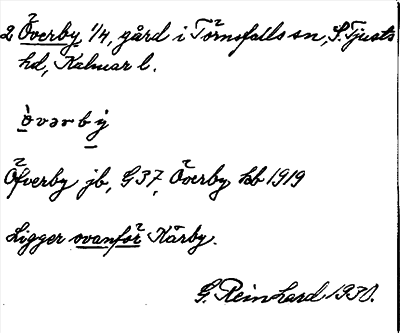 2 Överby 1/4, gård i Törnsfalls sn, S. Tjusts
hd, Kalmar l.
òvərbý
Öfverby jb, G37, Överby kb 1919
Ligger ovanför Kärby.
G. Reinhard 1930.